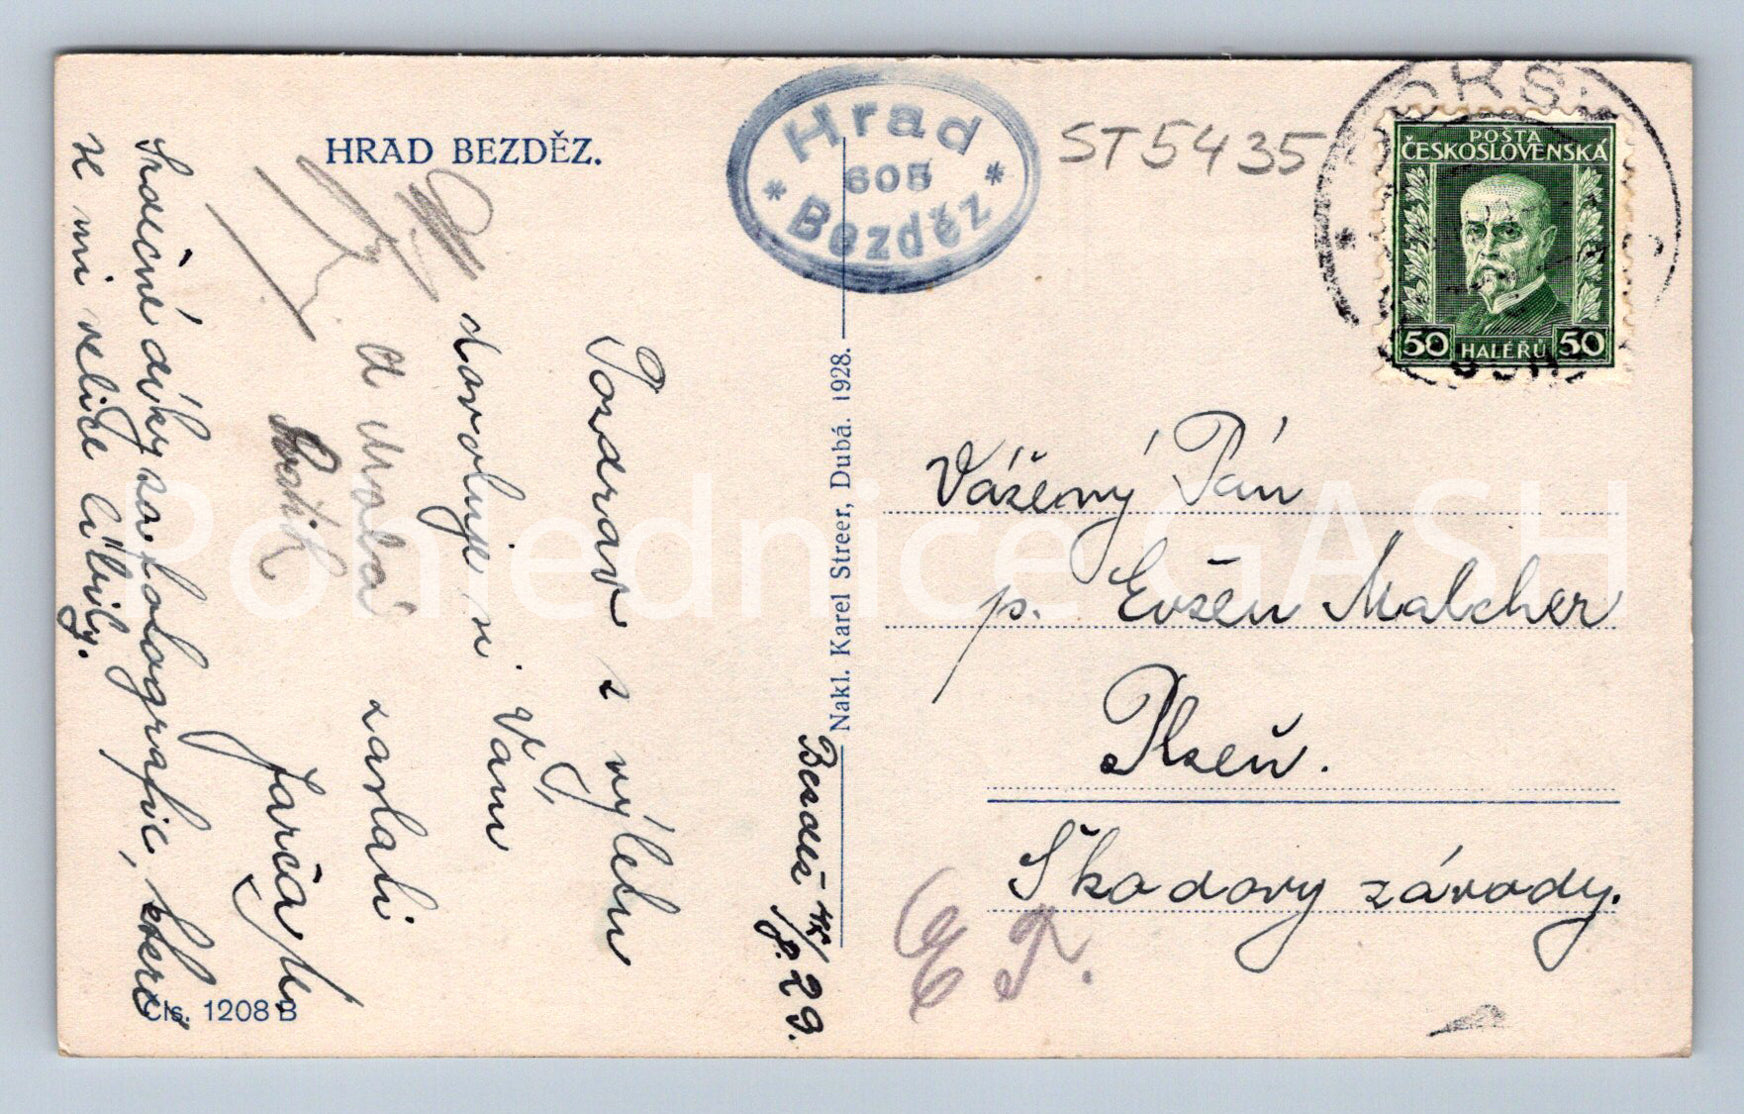 HRAD BEZDĚZ.
Hrad
* 605 *
Bezděz
ST5435
DOKSY
POSTA
ČESKOSLOVENSKÁ
50 HALÉŘŮ 50
Pozdrav z výletu
dovoluje si Vám
zaslati
Srdečné díky za fotografie, které
se mi velice líbily.
Bezděz
8. 29.
Nakl. Karel Streer, Dubá. 1928.
Vážený Pán
p. Evžen Malcher
Plzeň.
Škodovy závody.
Čís. 1208 B
Pohlednice GASH